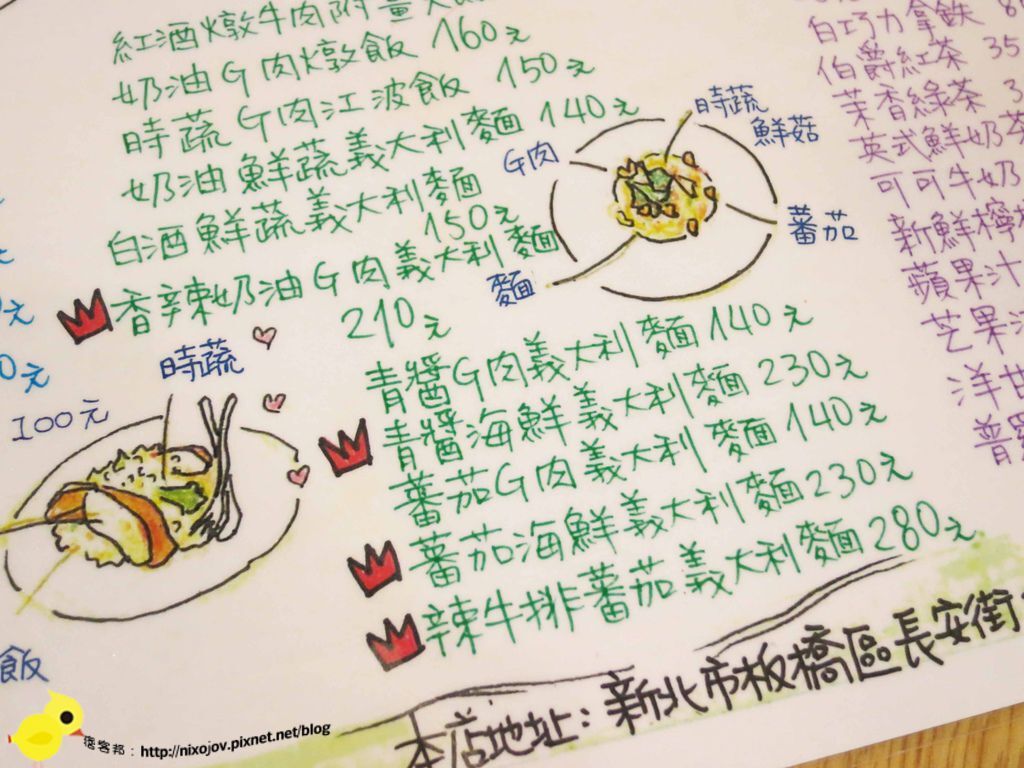 紅酒燉牛肉附薑
奶油G肉燉飯 160元
時蔬G肉江波飯 150元
奶油鮮蔬義大利麵 140元
白酒鮮蔬義大利麵
150元
香辣奶油G肉義大利麵
210元
青醬G肉義大利麵 140元
青醬海鮮義大利麵 230元
蕃茄G肉義大利麵 140元
蕃茄海鮮義大利麵 230元
辣牛排蕃茄義大利麵 280元
時蔬
鮮菇
G肉
蕃茄
麵
時蔬
100元
飯
白巧力拿鉄
伯爵紅茶 35
茉香綠茶
英式鮮奶茶
可可牛奶
新鮮檸
蘋果汁
芒果
洋甘
普
本店地址：新北市板橋區長安街
痞客邦：http://nixojov.pixnet.net/blog